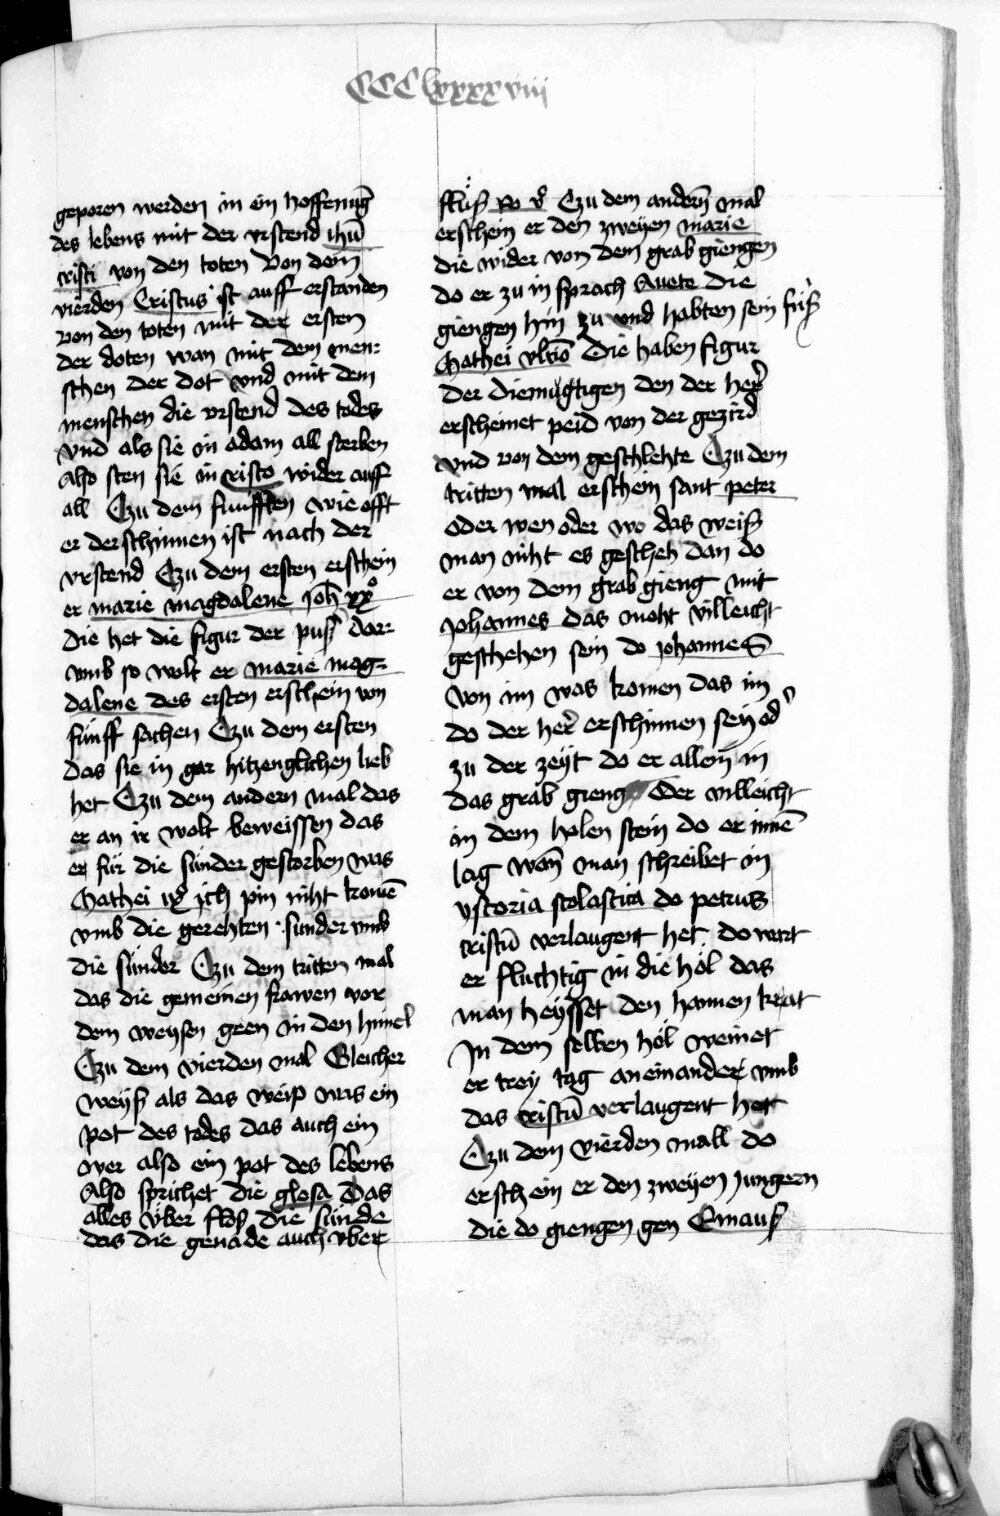 CCClxxxxviii
geporen werden in ein hoffenūg
des lebens mit der vrstend ihū
cristi von den toten Von dem
vierden Cristus ist auff erstanden
von den toten mit der ersten
der doten wan mit dem men:
schen der dot vnd mit dem
menschen die vrstend des todes
vnd als sie in adam all sterben
Also sten sie in cristo wider auff
all Czu dem funfften wie offt
er derschinnen ist nach der
vrstend Czu dem ersten erschein
er marie magdalene Joh xx°
die het die figur der puß Dar:
vmb so wolt er marie mag:
dalene des ersten erschein von
fünff sachen Czu dem ersten
das sie in gar hitzenglichen lieb
het Czu dem andern mal das
er an ir wolt beweissen das
er für die sünder gestorben was
Mathei ix ich pin niht komē
vmb die gerehten · sunder vmb
die sünder Czu dem tritten mal
das die gemeinen frawen vor
dem weysen geen in den himel
Czu dem vierden mal Gleicher
weyß als das weip was ein
pot des todes das auch ein
wer also ein pot des lebens
Also sprichet die glosa Das
alles vber floß die sünde
das die genade auch vber
fluß Ro v° Czu dem andern mal
erschein er den zweyen marie
die wider von dem grab giengen
do er zu in sprach Auete Die
giengen hin zu vnd habten sein fuß
Mathei vltīo Die haben figur
der diemügtigen den der her
erscheinet peid von der gezird
vnd von dem geschlehte Czu dem
tritten mal erschein sant peter
oder wen oder wo das weiß
man niht es gescheh dan do
er von dem grab gieng mit
Johannes das moht villeicht
geschehen sein do johannes
von im was komen das im
do der her erschinnen sey od
zu der zeyt do er allein in
das grab gieng Oder villeicht
in dem holen stein do er innē
lag wan man schreibet in
ystoria scolastica do petrus
cristū verlaugent het do wart
er fluchtig in die höl das
man heysset den hannen krat
In dem selben höl weinet
er trey tag an einander vmb
das cristū verlaugent het
Czu dem vierden mall do
erschein er den zweyen Jungern
die do giengen gen Emauß